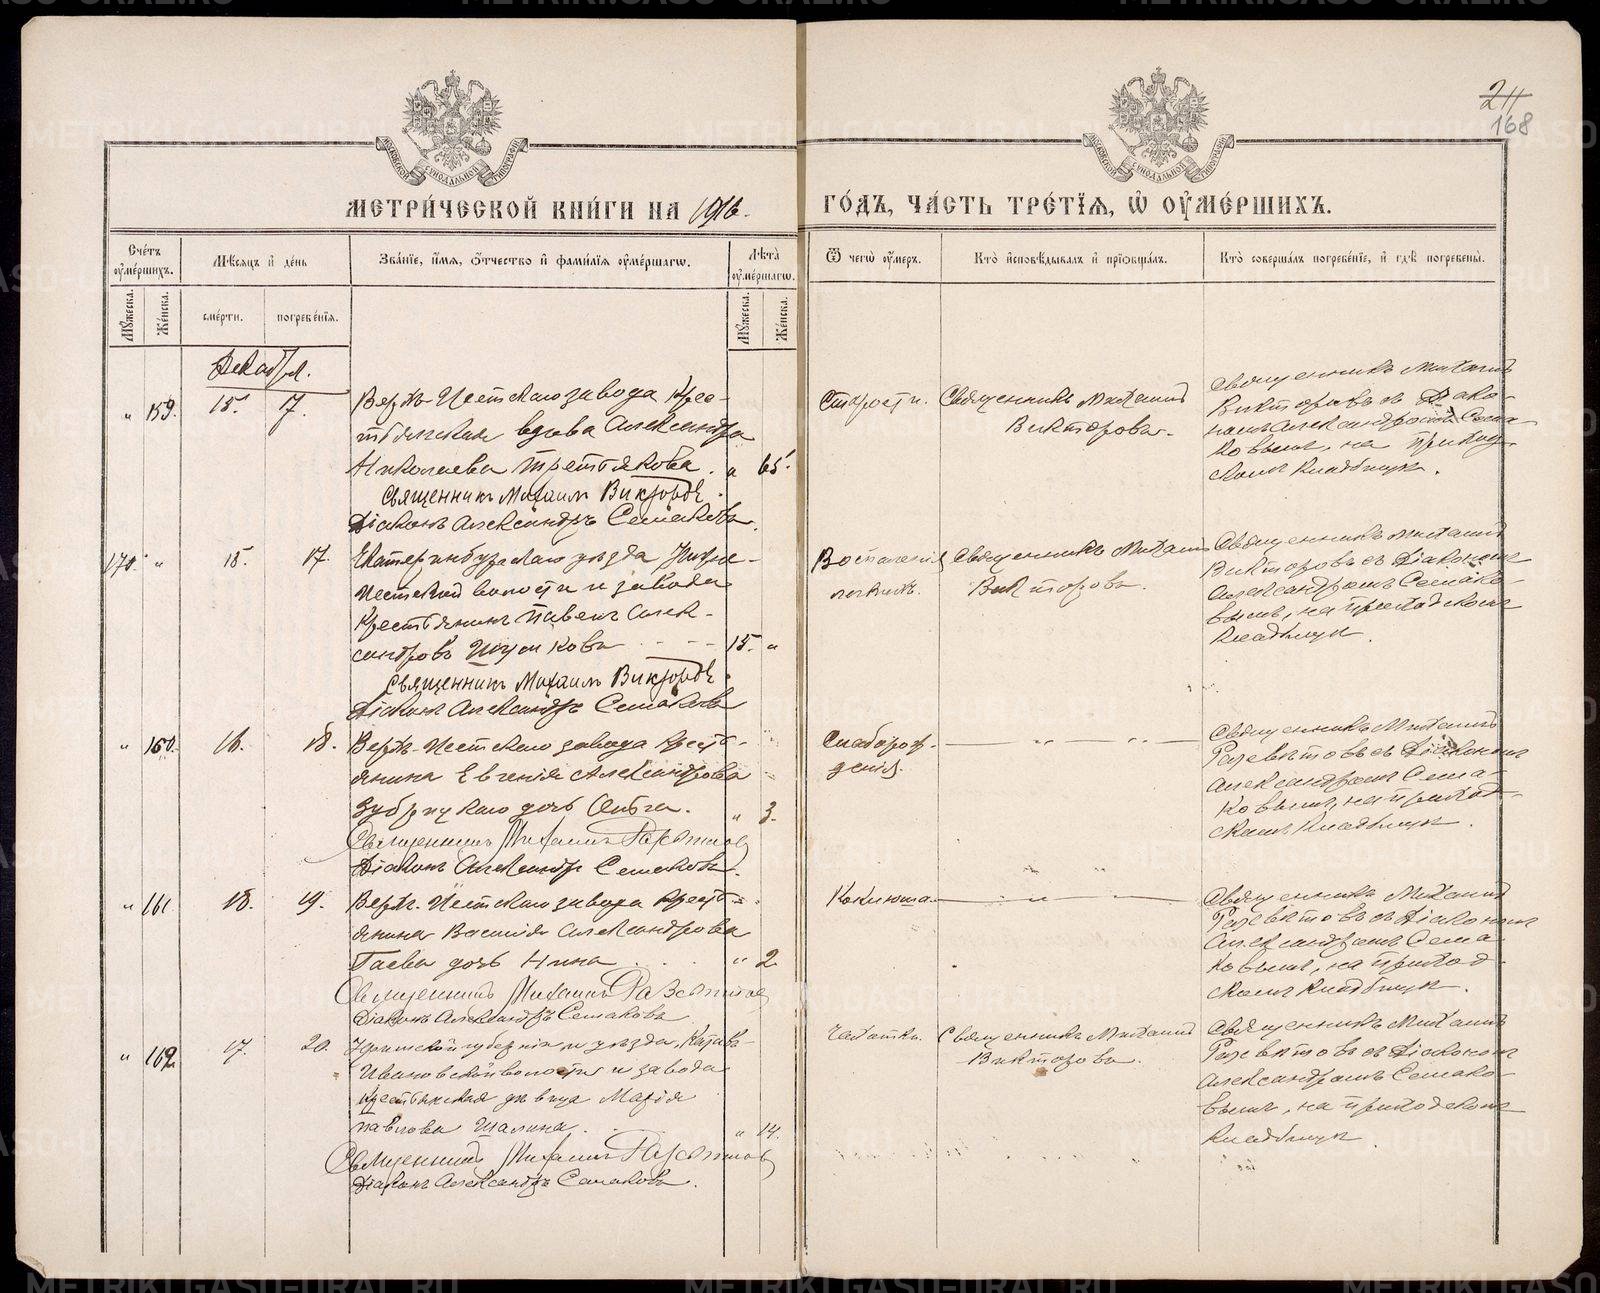 METRIKI.GASO-URAL.RU
211
168
МОСКОВСКОЙ СѴНОДАЛЬНОЙ ТИПОГРАФІИ
МОСКОВСКОЙ СѴНОДАЛЬНОЙ ТИПОГРАФІИ
МЕТРИ́ЧЕСКОЙ КНИ́ГИ НА 1916.
ГО́ДЪ, ЧА́СТЬ ТРЕ́ТІЯ, Ѡ҆ ОУ҆МЕ́РШИХЪ.
Сче́тъ оу҆ме́ршихъ.
Мѣ́сяцъ и҆ де́нь
Зва́ніе, и҆́мя, ѻ҆́тчество и҆ фами́лія оу҆ме́ршагѡ.
Лѣ́та оу҆ме́ршагѡ.
Ѿ чегѡ̀ оу҆́меръ.
Кто̀ и҆сповѣ́дывалъ и҆ прїѡбща́лъ.
Кто̀ соверша́лъ погребе́ніе, и҆ гдѣ̀ погребены̀.
Мꙋ́жеска.
Же́нска.
сме́рти.
погребе́нія.
Мꙋ́жеска.
Же́нска.
Декабрь.
" 159. 15. 17.
Верхъ-Исетскаго завода крес-
тьянская вдова Александра
Николаева Третьякова. " 65.
Священникъ Михаилъ Викторовъ.
Діаконъ Александръ Семаковъ.
Старости.
Священникъ Михаилъ
Викторовъ.
Священникъ Михаилъ
Викторовъ съ Діако-
номъ Александромъ Сема-
ковымъ, на приход-
скомъ кладбищѣ.
170. " 15. 17.
Екатеринбургскаго уѣзда, Нижне-
Исетской волости и завода
крестьянинъ Павелъ Алек-
сандровъ Шумковъ 15. "
Священникъ Михаилъ Викторовъ.
Діаконъ Александръ Семаковъ
Воспаленія
почекъ.
Священникъ Михаилъ
Викторовъ.
Священникъ Михаилъ
Викторовъ съ Діакономъ
Александромъ Семако-
вымъ, на приходскомъ
кладбищѣ.
" 160. 16. 18.
Верхъ-Исетскаго завода кресть-
янина Евгенія Александрова
Зубрицкаго дочь Ольга. " 3.
Священникъ Михаилъ Разсвѣтовъ
Діаконъ Александръ Семаковъ.
Слаборож-
денія.
— " " —
Священникъ Михаилъ
Разсвѣтовъ съ Діакономъ
Александромъ Сема-
ковымъ, на приход-
скомъ кладбищѣ.
" 161 18. 19.
Верхъ-Исетскаго завода кресть-
янина Василія Александрова
Гаева дочь Нина " 2.
Священникъ Михаилъ Разсвѣтовъ
Діаконъ Александръ Семаковъ
Коклюша.
— " " —
Священникъ Михаилъ
Разсвѣтовъ съ Діакономъ
Александромъ Сема-
ковымъ, на приход-
скомъ кладбищѣ.
" 162 17. 20.
Уфимской губерніи и уѣзда, Катавъ-
Ивановской волости и завода
крестьянская дѣвица Марія
Павлова Шалина. " 14.
Священникъ Михаилъ Разсвѣтовъ
Діаконъ Александръ Семаковъ.
Чахотки.
Священникъ Михаилъ
Викторовъ.
Священникъ Михаилъ
Разсвѣтовъ съ Діакономъ
Александромъ Семако-
вымъ, на приходскомъ
кладбищѣ.
METRIKI.GASO-URAL.RU